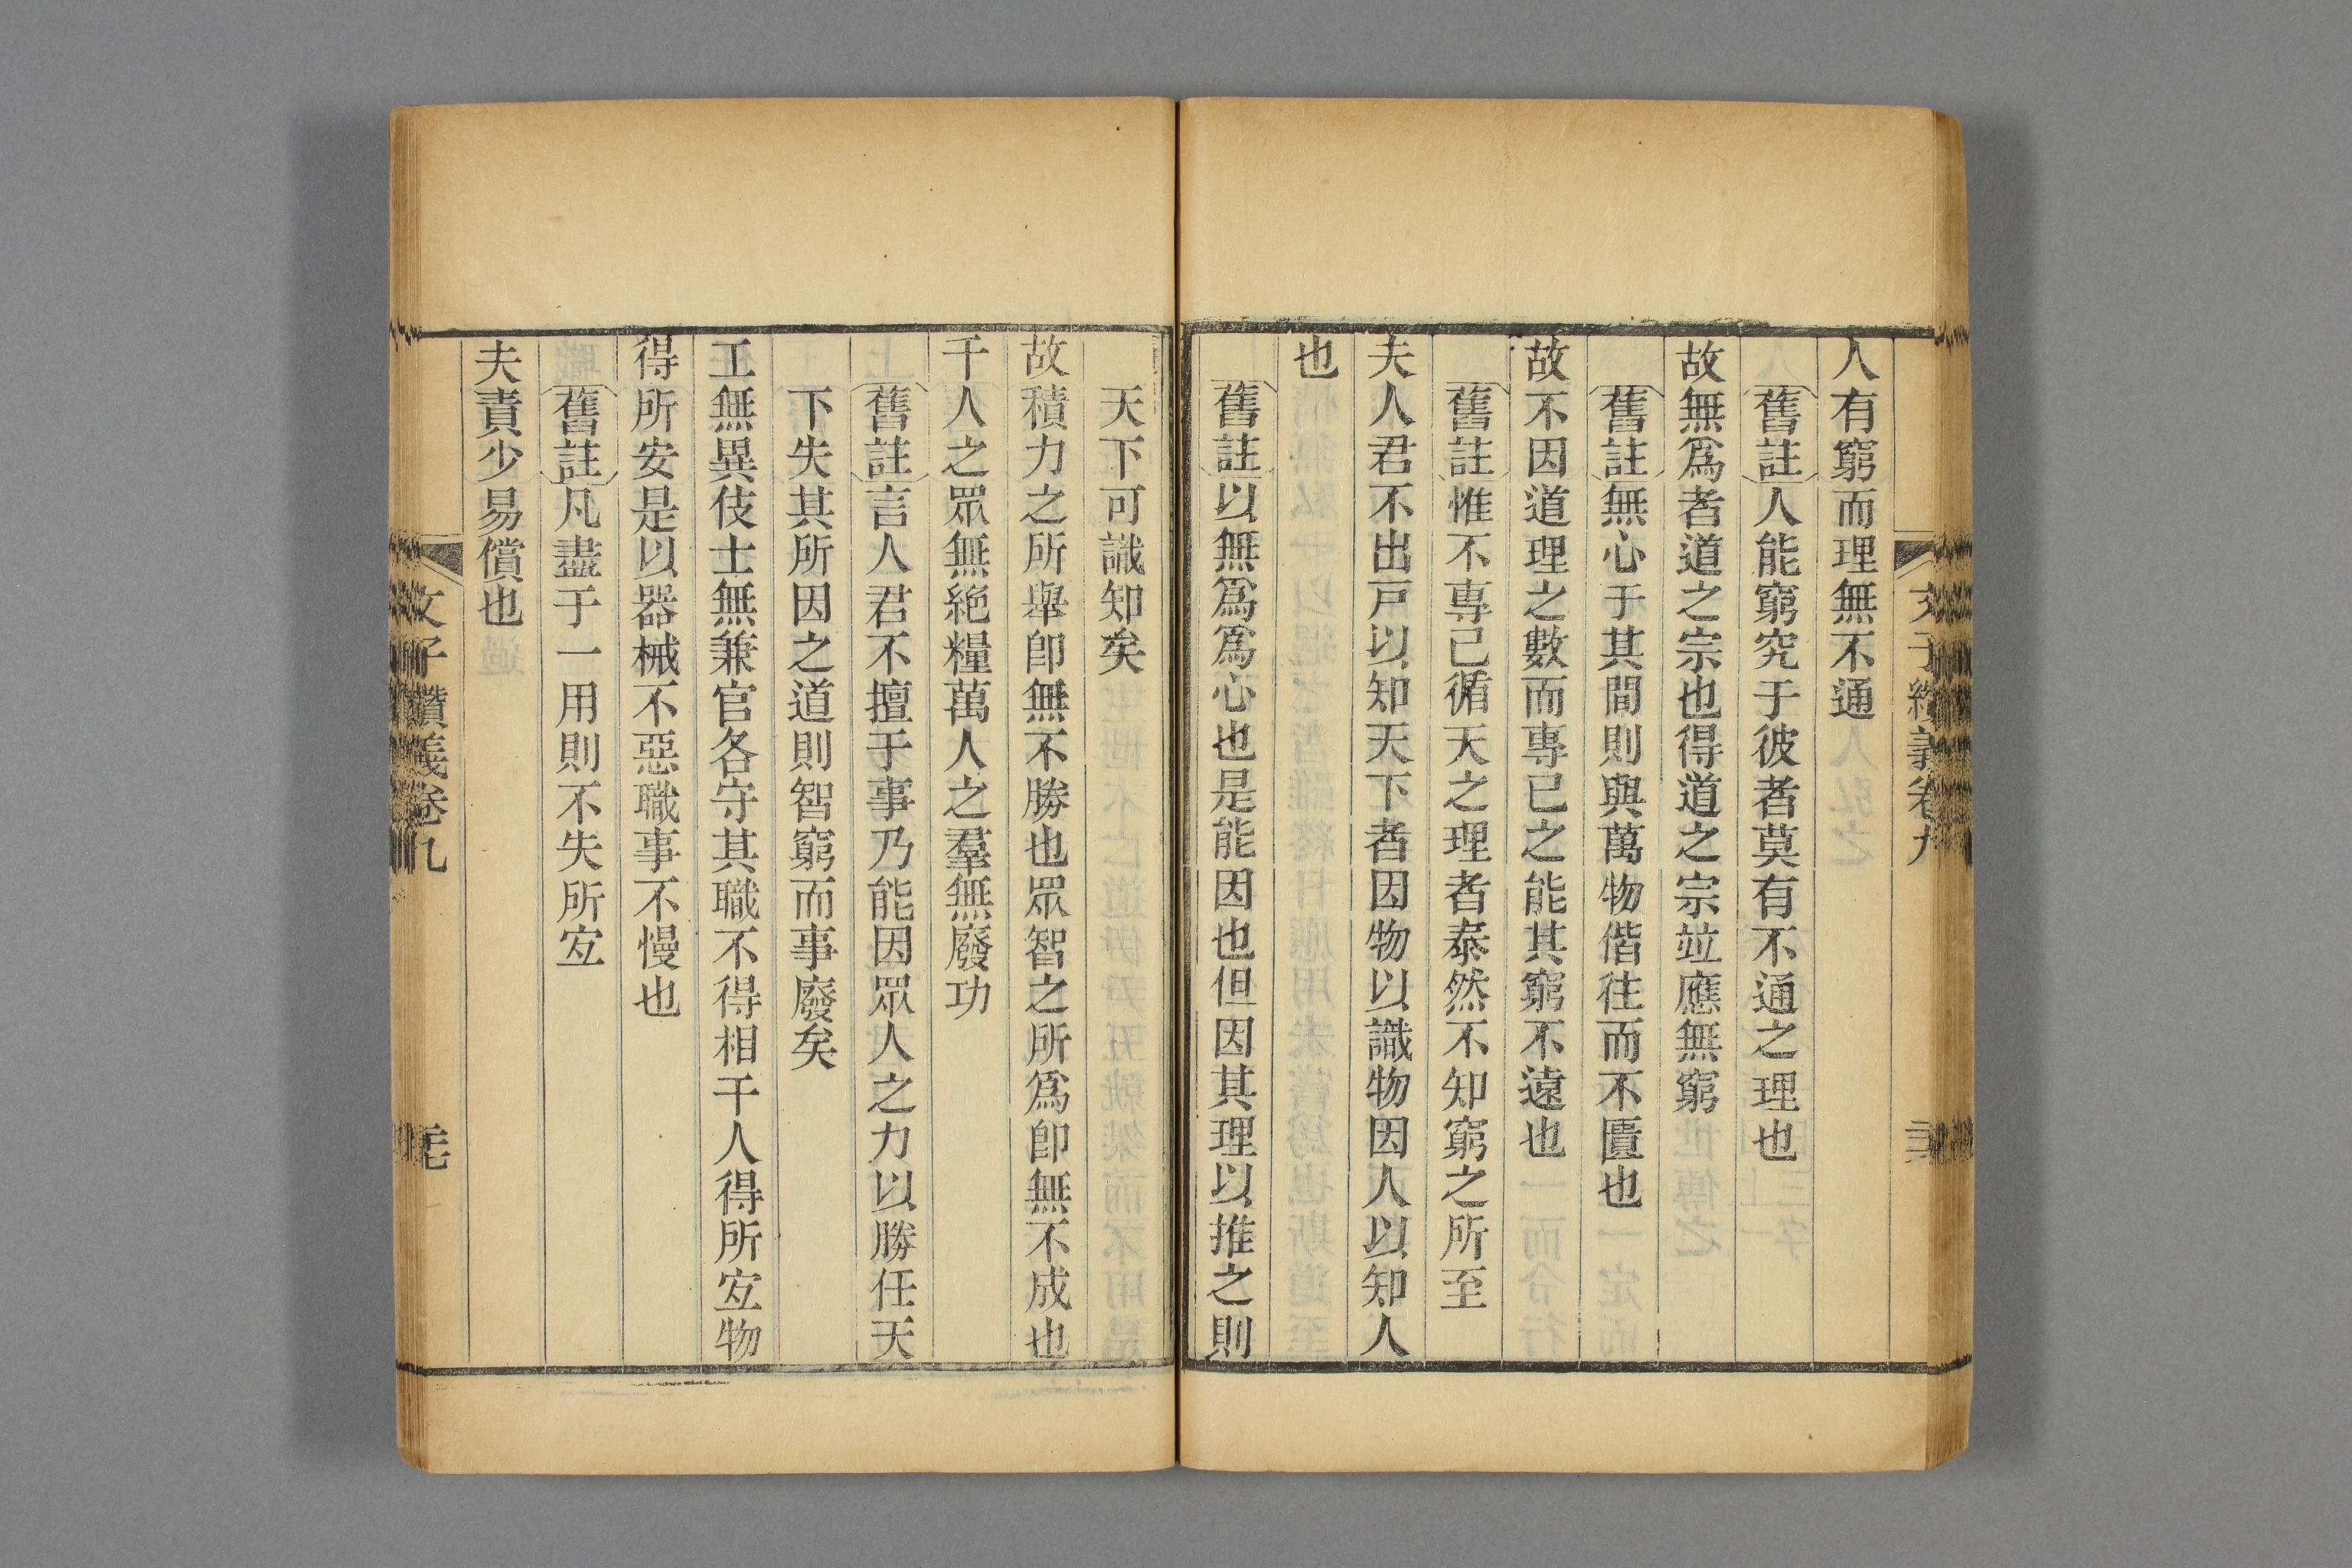 人有窮而理無不通
舊註人能窮究于彼者莫有不通之理也
故無爲者道之宗也得道之宗竝應無窮
舊註無心于其間則與萬物偕往而不匱也
故不因道理之數而專已之能其窮不遠也
舊註惟不專已循天之理者泰然不知窮之所至
夫人君不出戸以知天下者因物以識物因人以知人
也
舊註以無爲爲心也是能因也但因其理以推之則
天下可識知矣
故積力之所舉卽無不勝也眾智之所爲卽無不成也
千人之眾無絶糧萬人之羣無廢功
舊註言人君不擅于事乃能因眾人之力以勝任天
下失其所因之道則智窮而事廢矣
工無異伎士無兼官各守其職不得相干人得所宐物
得所安是以器械不惡職事不慢也
舊註凡盡于一用則不失所宐
夫責少易償也
文子纘義卷九